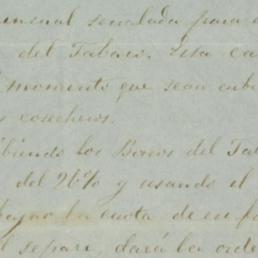 ensual senalada para
del Tabaco. Esta ca
momento que sean cub
s cosecheros.
biendo los Bonos del Ta
del 26% y usando el
la cuota de
l separe, dará la orde